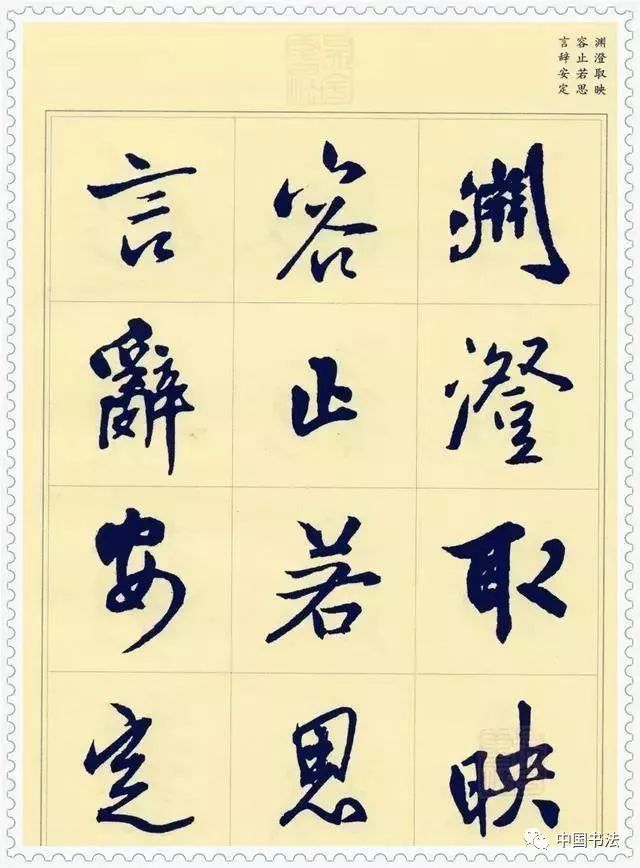 渊澄取映
容止若思
言辞安定
淵澄取映
容止若思
言辭安定
中国书法